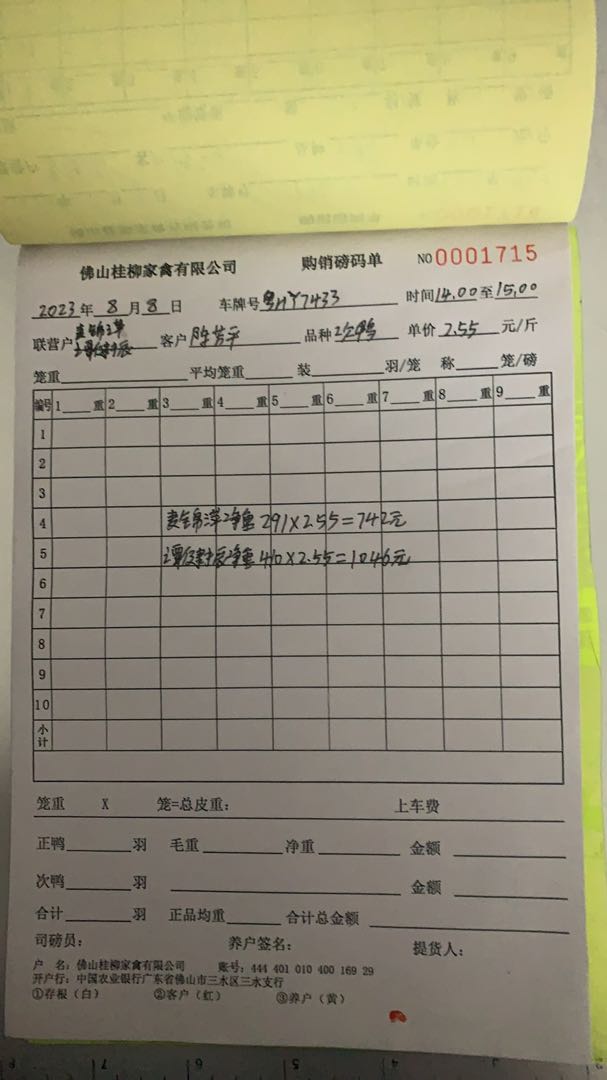 佛山桂柳家禽有限公司 购销磅码单 NO 0001715
2023年8月8日 车牌号粤HY7433 时间14.00至15.00
联营户 客户 陈芳平 品种 次鸭 单价 2.55 元/斤
笼重 平均笼重 装 羽/笼 称 笼/磅
编号 1 重 2 重 3 重 4 重 5 重 6 重 7 重 8 重 9 重
1
2
3
4 净重291×2.55=742元
5 净重410×2.55=1046元
6
7
8
9
10
小计
笼重 X 笼=总皮重: 上车费
正鸭 羽 毛重 净重 金额
次鸭 羽 金额
合计 羽 正品均重 合计总金额
司磅员: 养户签名: 提货人:
户 名:佛山桂柳家禽有限公司 账号:444 401 010 400 169 29
开户行:中国农业银行广东省佛山市三水区三水支行
①存根(白) ②客户(红) ③养户(黄)